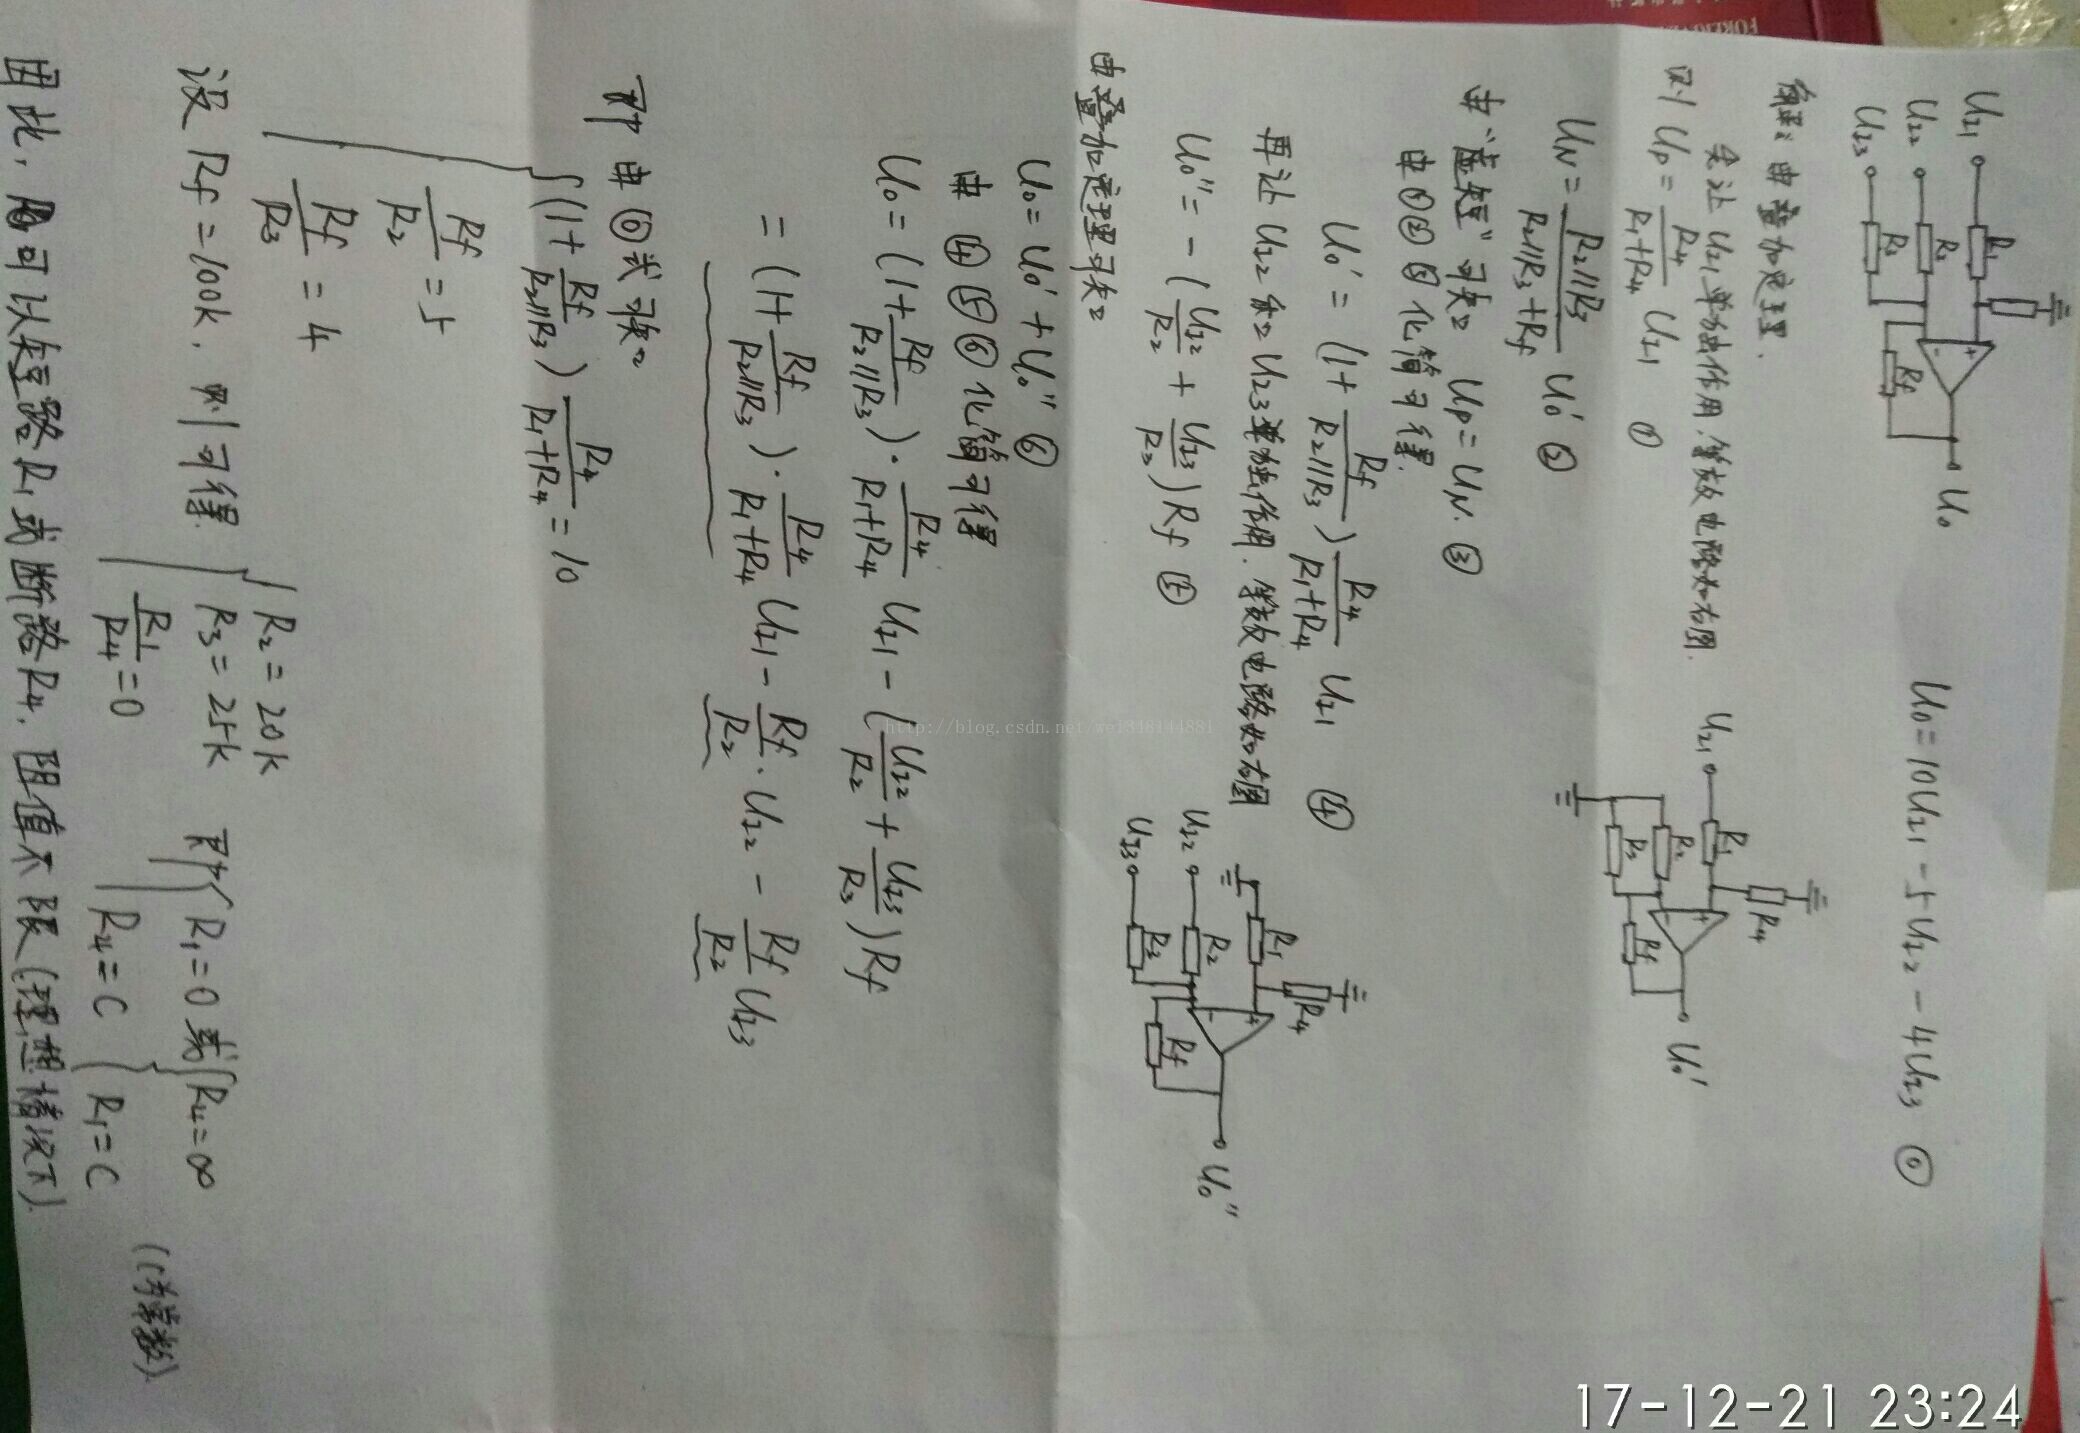 U₀=10U_I1-5U_I2-4U_I3 ⓪
U_I1
U_I2
U_I3
R₁
R₂
R₃
Rf
U₀
解: 由叠加定理.
先让U_I1单独作用,等效电路如右图.
则 U_P = \frac{R₄}{R₁+R₄} U_I1 ①
U_N = \frac{R₂//R₃}{R₂//R₃+Rf} U₀' ②
由“虚短”可知 U_P=U_N. ③
由①②③化简可得.
U₀' = (1+\frac{Rf}{R₂//R₃})\frac{R₄}{R₁+R₄} U_I1 ④
U_I1
R₁
R₂
R₃
R₄
Rf
U₀'
再让U_I2和U_I3单独作用.等效电路如右图
U₀''= -(\frac{U_I2}{R₂}+\frac{U_I3}{R₃})Rf ⑤
U_I2
U_I3
R₁
R₂
R₃
R₄
Rf
U₀''
由叠加定理可知
U₀=U₀'+U₀'' ⑥
由④⑤⑥化简可得
U₀=(1+\frac{Rf}{R₂//R₃})·\frac{R₄}{R₁+R₄} U_I1-(\frac{U_I2}{R₂}+\frac{U_I3}{R₃})Rf
=(1+\frac{Rf}{R₂//R₃})·\frac{R₄}{R₁+R₄} U_I1-\frac{Rf}{R₂}·U_I2-\frac{Rf}{R₂}U_I3
即由⓪式可知
(1+\frac{Rf}{R₂//R₃})\frac{R₄}{R₁+R₄}=10
\frac{Rf}{R₂}=5
\frac{Rf}{R₃}=4
设Rf=100k,则可得
R₂=20k
R₃=25k
\frac{R₁}{R₄}=0
即
R₁=0 或 R₄=∞
R₄=C R₁=C
(C为常数)
因此,可以短路R₁或断路R₄.阻值不限(理想情况下).
http://blog.csdn.net/wei348144881
17-12-21 23:24